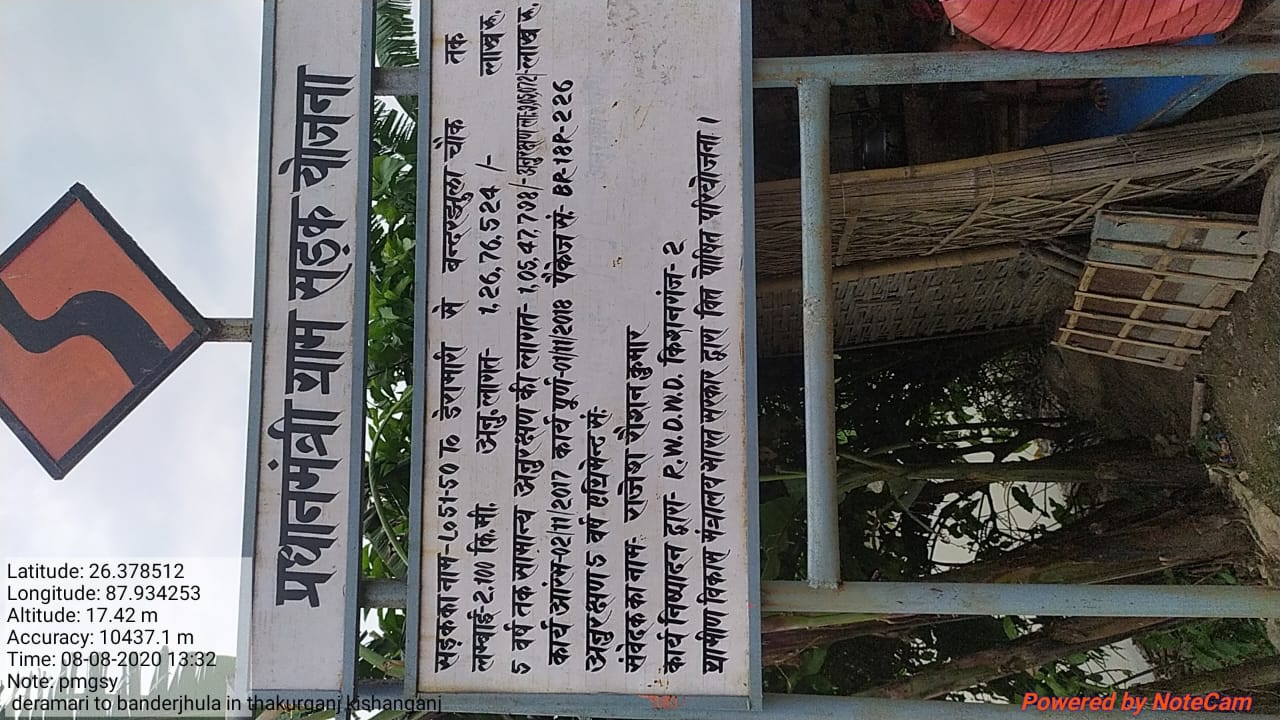 प्रधानमंत्री ग्राम सड़क योजना
सड़क का नाम- L051-50 TO डेरामारी से बन्दरझुला चौक तक
लम्बाई- 2.100 कि.मी. अनु. लागत- 1,26,76,524 /- लाख रु.
5 वर्ष तक सामान्य अनुरक्षण की लागत- 1,05,47,798/- अनुरक्षण लाः लाख रु.
कार्य आरंभ- 02/11/2017 कार्य पुर्ण- 01/11/2018 पैकेज सं.- BR-18R-226
अनुरक्षण 5 वर्ष एग्रिमेन्ट सं:
संवेदक का नामः राजेश रौशन कुमार
कार्य निष्पादन द्वारा- R.W.D.W.D. किशनगंज- 2
ग्रामीण विकास मंत्रालय भारत सरकार द्वारा वित पोषित परियोजना ।
Latitude: 26.378512
Longitude: 87.934253
Altitude: 17.42 m
Accuracy: 10437.1 m
Time: 08-08-2020 13:32
Note: pmgsy
deramari to banderjhula in thakurganj kishanganj
Powered by NoteCam